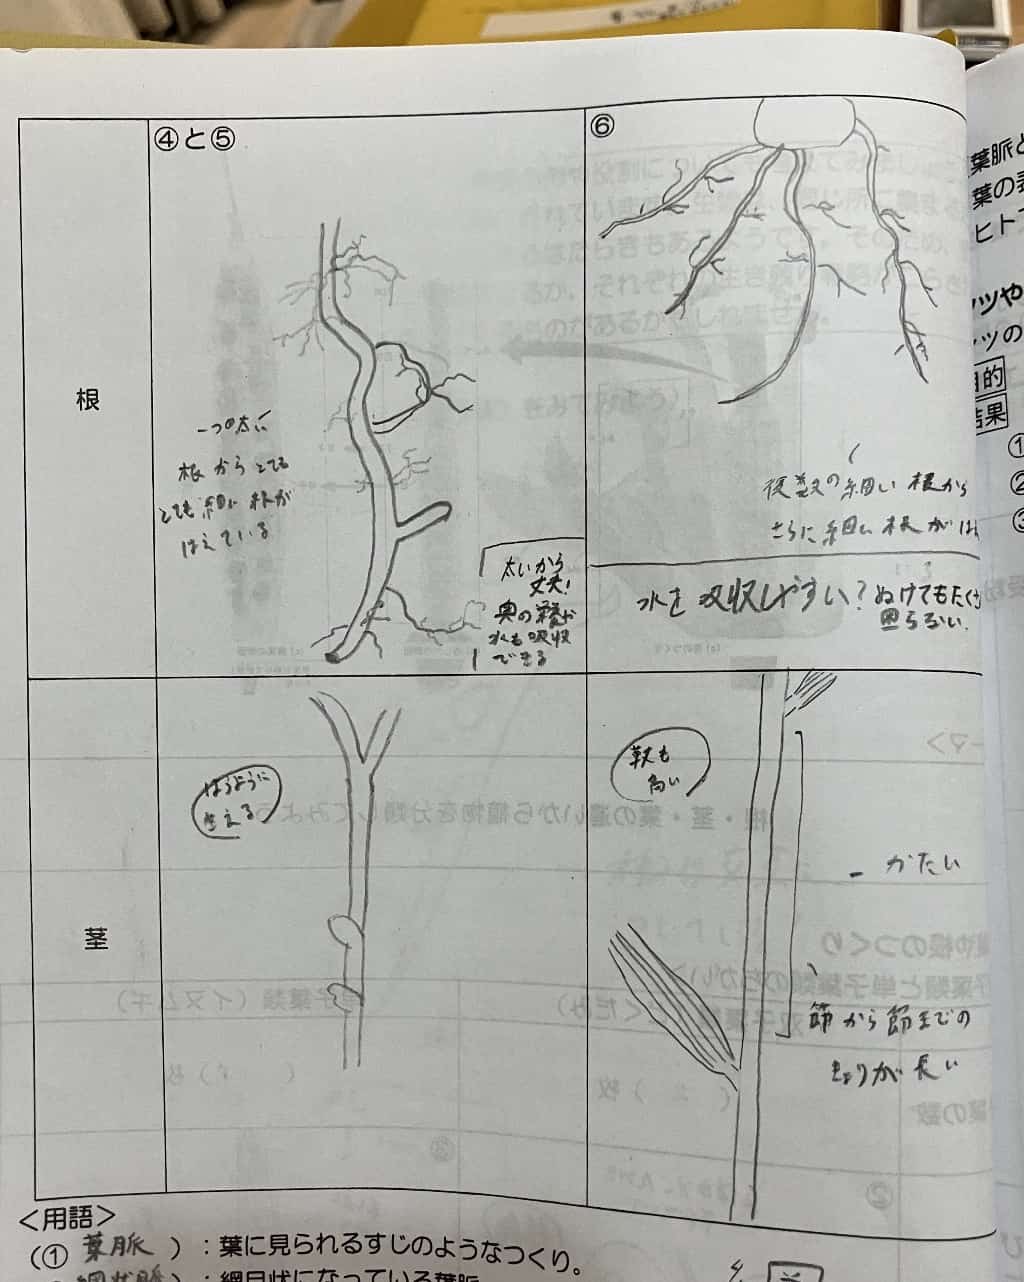 ④と⑤
⑥
根
一つの太い
根からとても
とても細い根が
はえている
太いから
丈夫!
奥の
水も吸収
できる
複数の細い根から
さらに細い根がは
水を吸収しやすい?ぬけてもたく
困らない.
茎
はうように
生える
草丈も
高い
かたい
節から節までの
きょりが長い
<用語>
(① 葉脈 ):葉に見られるすじのようなつくり。
網状脈 ):網目状になっている葉脈
葉脈と
葉の表
ヒト
ツや
ツの
目的
結果
①
②
③